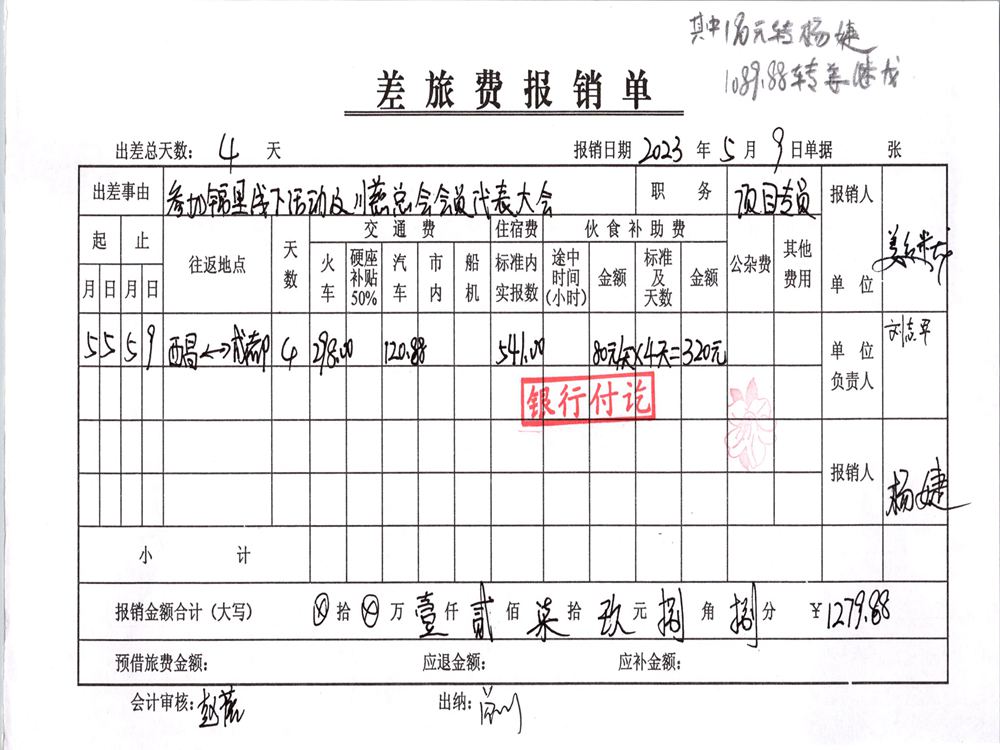 其中190元转杨婕
1089.88转姜继成
差旅费报销单
出差总天数: 4 天 报销日期 2023 年 5 月 9 日单据 张
出差事由 参加锦里线下活动及川慈总会会员代表大会 职务 项目专员 报销人
单位
起 止 往返地点 天数 交通费 住宿费 伙食补助费 公杂费 其他费用
月 日 月 日 火车 硬座补贴50% 汽车 市内 船机 标准内实报数 途中时间(小时) 金额 标准及天数 金额
5 5 5 9 西昌↔成都 4 298.00 120.88 541.00 80元/天×4天=320元
单位负责人 刘志平
银行付讫
报销人 杨婕
小计
报销金额合计(大写) ⊗拾⊗万壹仟贰佰柒拾玖元捌角捌分 ¥1279.88
预借旅费金额: 应退金额: 应补金额:
会计审核: 出纳: